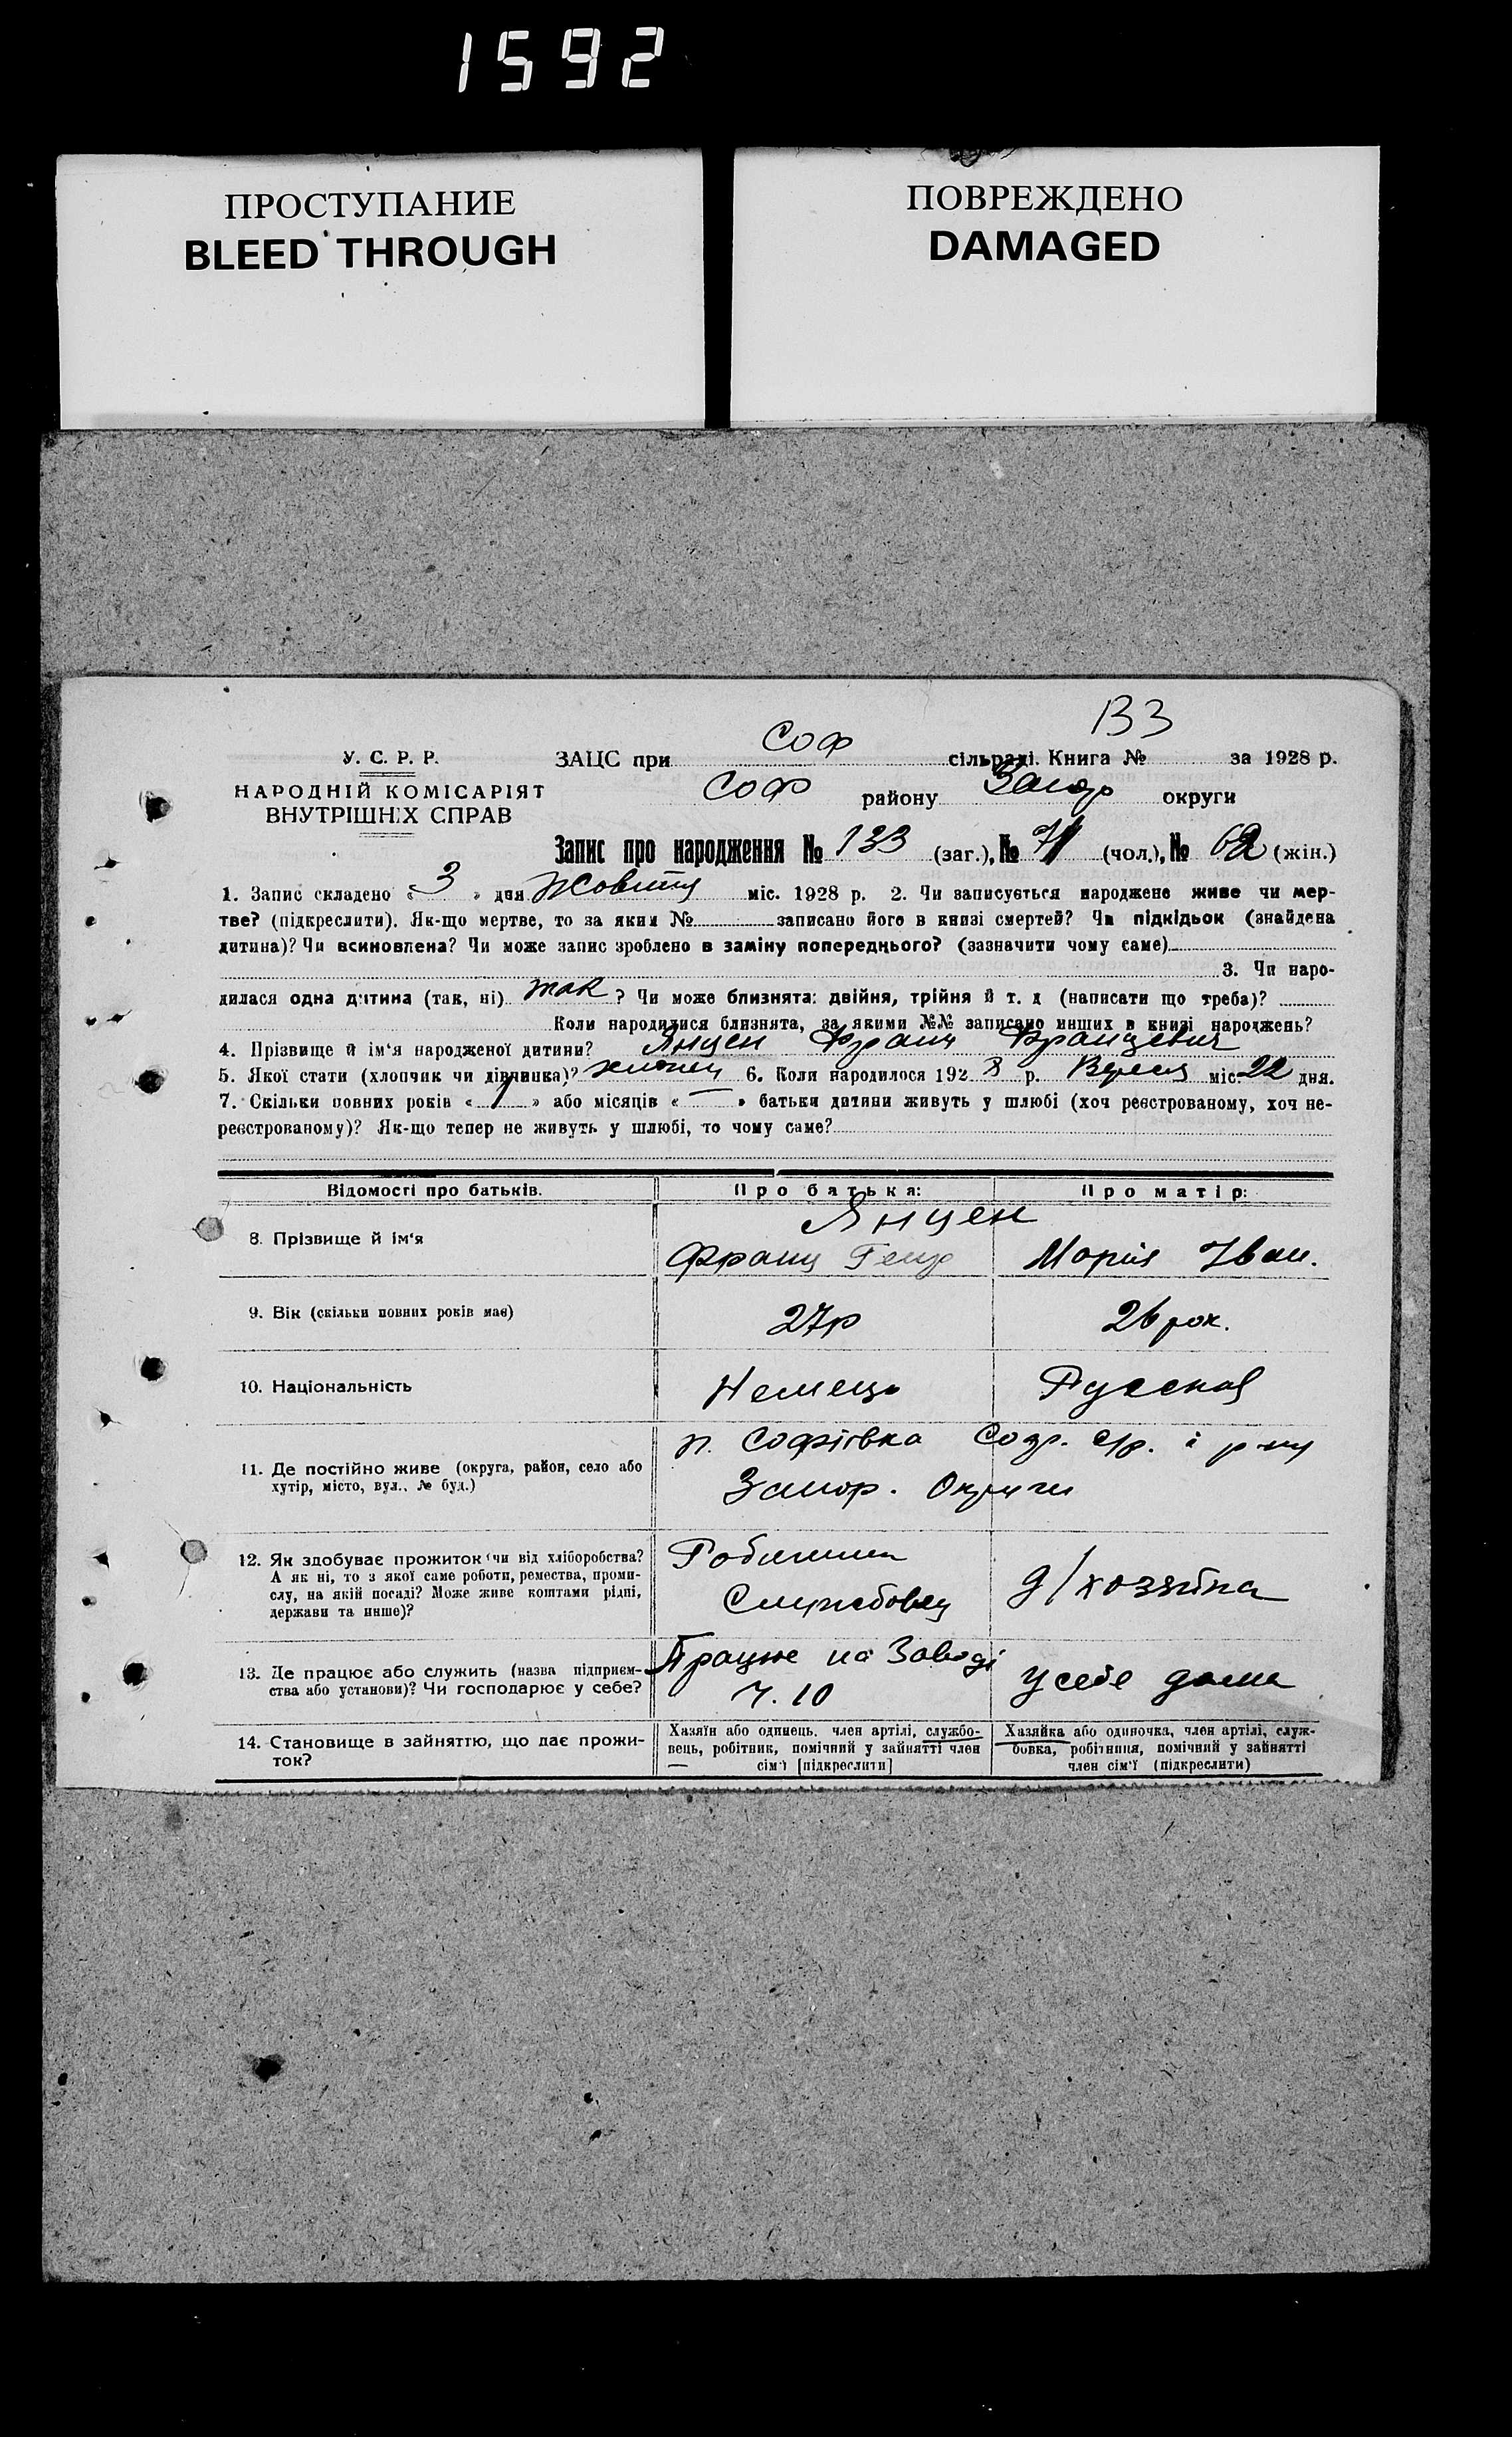 1592
ПРОСТУПАНИЕ
BLEED THROUGH
ПОВРЕЖДЕНО
DAMAGED
133
У. С. Р. Р.
НАРОДНІЙ КОМІСАРІЯТ
ВНУТРІШНІХ СПРАВ
ЗАЦС при Соф сільраді. Книга № за 1928 р.
Соф району Запор округи
Запис про народження № 133 (заг.), № 71 (чол.), № 62 (жін.)
1. Запис складено « 3 » дня Жовтня міс. 1928 р. 2. Чи записується народжене живе чи мер-
тве? (підкреслити). Як-що мертве, то за яким № записано його в книзі смертей? Чи підкідьок (знайдена
дитина)? Чи всиновлена? Чи може запис зроблено в заміну попереднього? (зазначити чому саме)
3. Чи наро-
дилася одна дитина (так, ні) так ? Чи може близнята: двійня, трійня й т. д (написати що треба)?
Коли народилися близнята, за якими №№ записано инших в книзі народжень?
4. Прізвище й ім'я народженої дитини? Янцен Франц Францевич
5. Якої стати (хлопчик чи дівчинка)? хлопец 6. Коли народилося 192 8 р. Вересня міс. 22 дня.
7. Скільки повних років « 1 » або місяців « — » батьки дитини живуть у шлюбі (хоч реєстрованому, хоч не-
реєстрованому)? Як-що тепер не живуть у шлюбі, то чому саме?
Відомості про батьків. Про батька: Про матір:
8. Прізвище й ім'я
Янцен
Франц Генр Марія Іван.
9. Вік (скільки повних років має) 27р 26 рок.
10. Національність Немець Русская
11. Де постійно живе (округа, район, село або
хутір, місто, вул., № буд.)
п. Софіівка Соф. с/р. і р-ну
Запор. Округи
12. Як здобуває прожиток (чи від хліборобства?
А як ні, то з якої саме роботи, ремества, проми-
слу, на якій посаді? Може живе коштами рідні,
держави та инше)?
Службовец
д/хозяїна
13. Де працює або служить (назва підприєм-
ства або установи)? Чи господарює у себе?
Працює на Заводі
ч. 10
у себе дома
14. Становище в зайняттю, що дає прожи-
ток?
Хазяїн або одинець, член артілі, службо-
вець, робітник, помічний у зайнятті член
сім'ї [підкреслити]
Хазяйка або одиночка, член артілі, служ-
бовка, робітниця, помічний у зайнятті
член сім'ї (підкреслити)